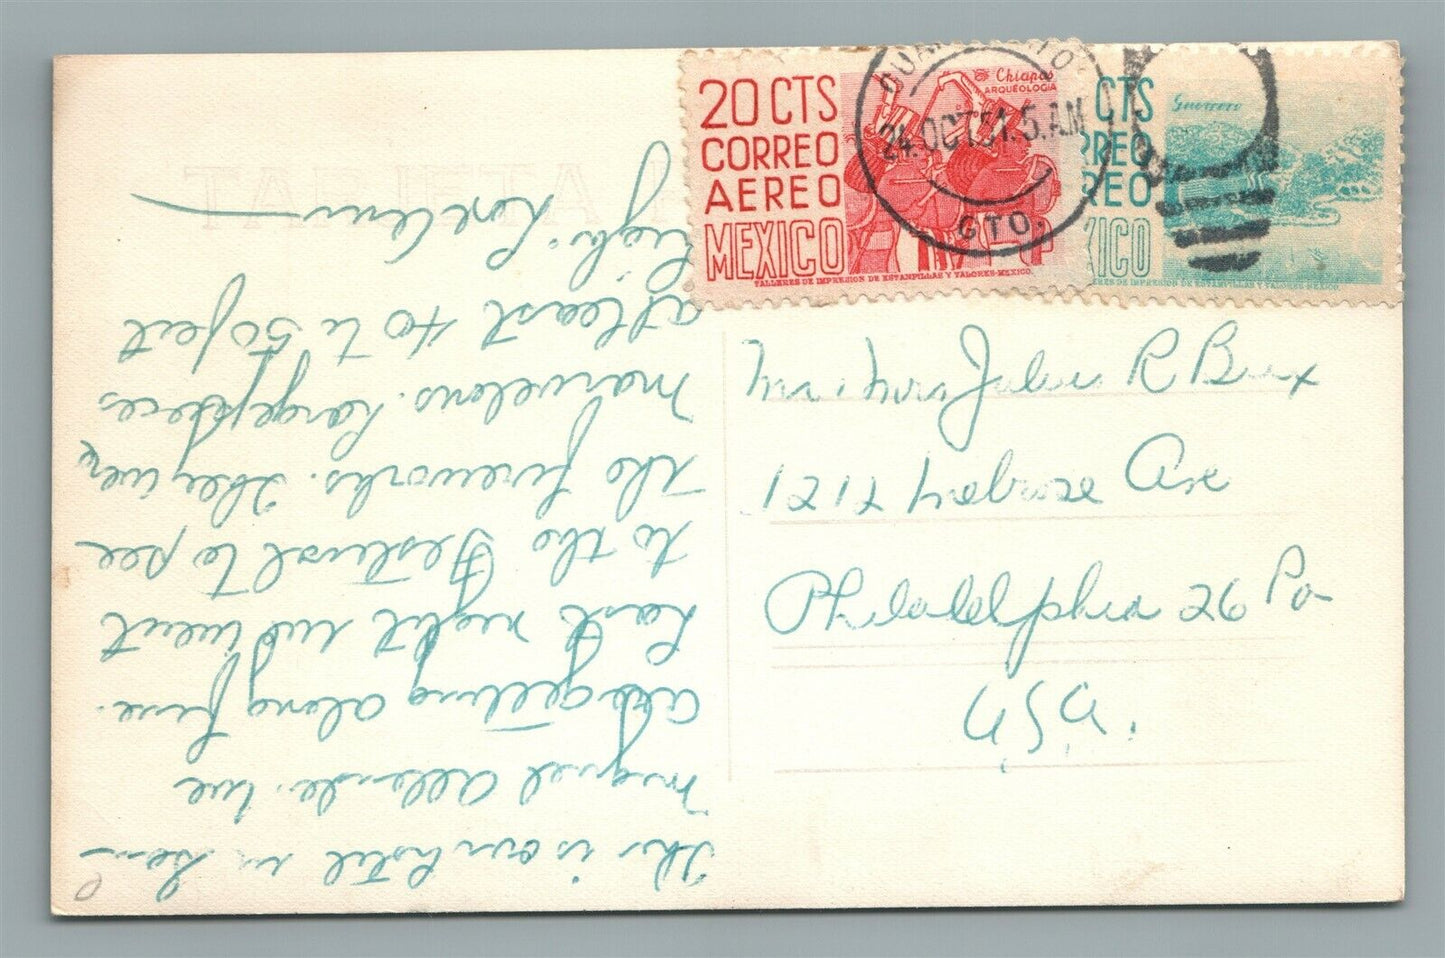 20 CTS
CORREO
AEREO
MEXICO
Chiapas
ARQUEOLOGIA
TALLERES DE IMPRESION DE ESTAMPILLAS Y VALORES-MEXICO.
24.OCT51.5.AM
GTO.
CTS
RREO
REO
XICO
Guerrero
RES DE IMPRESION DE ESTAMPILLAS Y VALORES MEXICO
TARJETA
Mr. & Mrs Julius R
1212 Melrose Ave
Philadelphia 26 Pa
USA.
This is our hotel in San
Miguel Allende. We
are getting along fine.
Last night we went
to the festival to see
the fireworks. They were
marvelous. Large pieces
atleast 40 to 50 feet
high.